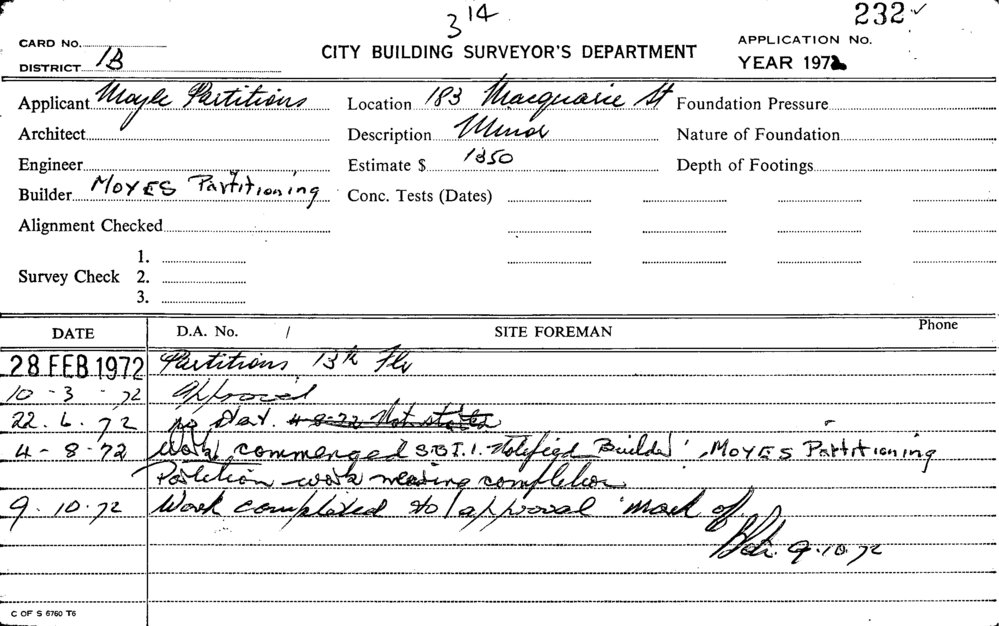 3 14
232 ✓
CARD No.
APPLICATION No.
DISTRICT 1B
CITY BUILDING SURVEYOR'S DEPARTMENT
YEAR 1972
Applicant Moyle Partitions
Location 183 Macquarie St
Foundation Pressure
Architect
Description Minor
Nature of Foundation
Engineer
Estimate $ 1350
Depth of Footings
Builder MOYES Partitioning
Conc. Tests (Dates)
Alignment Checked
1.
Survey Check 2.
3.
DATE D.A. No. / SITE FOREMAN Phone
28 FEB 1972 Partitions 13th Flr
10 - 3 - 72 Approved
22. 6. 72 no start. 4-8-72 Not started
4 - 8 - 72 Work commenced S.B.I.1. Notified Builder MOYES Partitioning
Partition work nearing completion
9. 10. 72 Work completed to approval mark off
9.10.72
C OF S 6760 T6